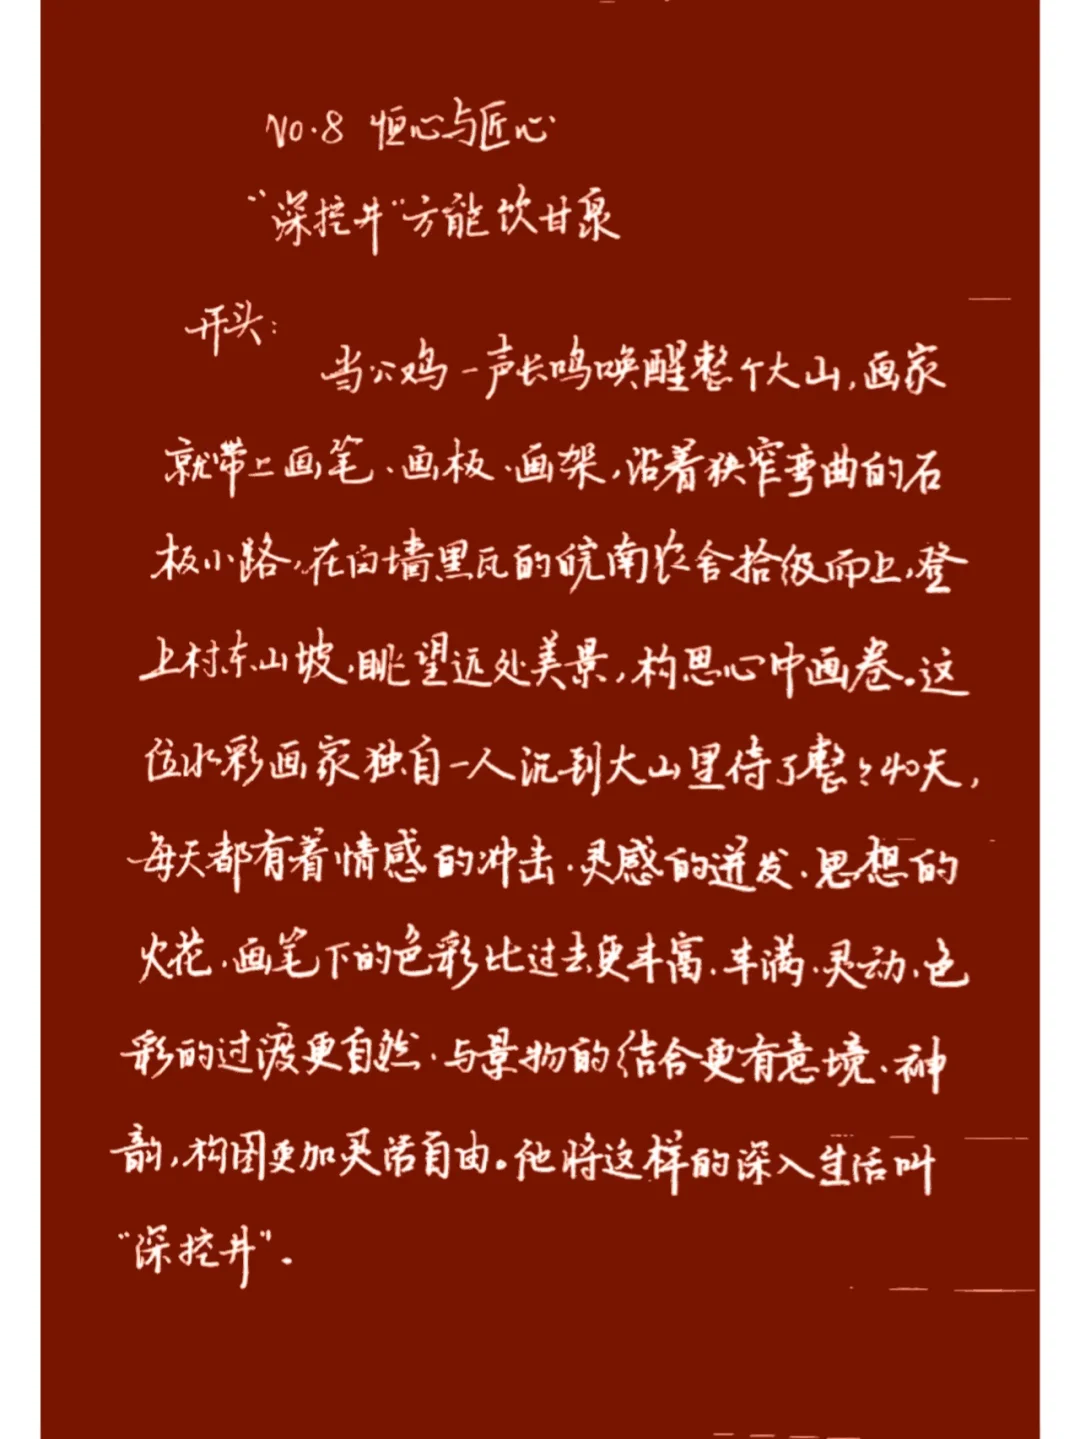 No.8 恒心与匠心
“深挖井”方能饮甘泉
开头：
当公鸡一声长鸣唤醒整个大山，画家
就带上画笔、画板、画架，沿着狭窄弯曲的石
板小路，在白墙黑瓦的皖南农舍拾级而上，登
上村东山坡，眺望远处美景，构思心中画卷。这
位水彩画家独自一人沉到大山里待了整整40天，
每天都有着情感的冲击、灵感的迸发、思想的
火花、画笔下的色彩比过去更丰富、丰满、灵动、色
彩的过渡更自然、与景物的结合更有意境、神
韵，构图更加灵活自由。他将这样的深入生活叫
“深挖井”。